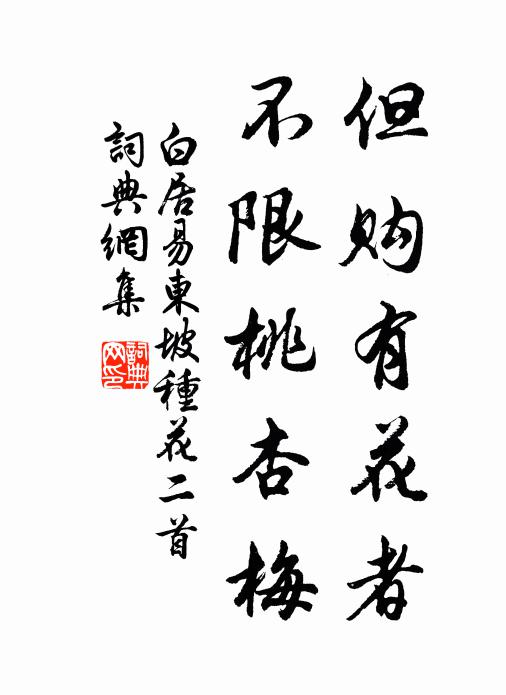 但购有花者
不限桃杏梅
白居易東坡種花二首
詞典網集
詞典網印